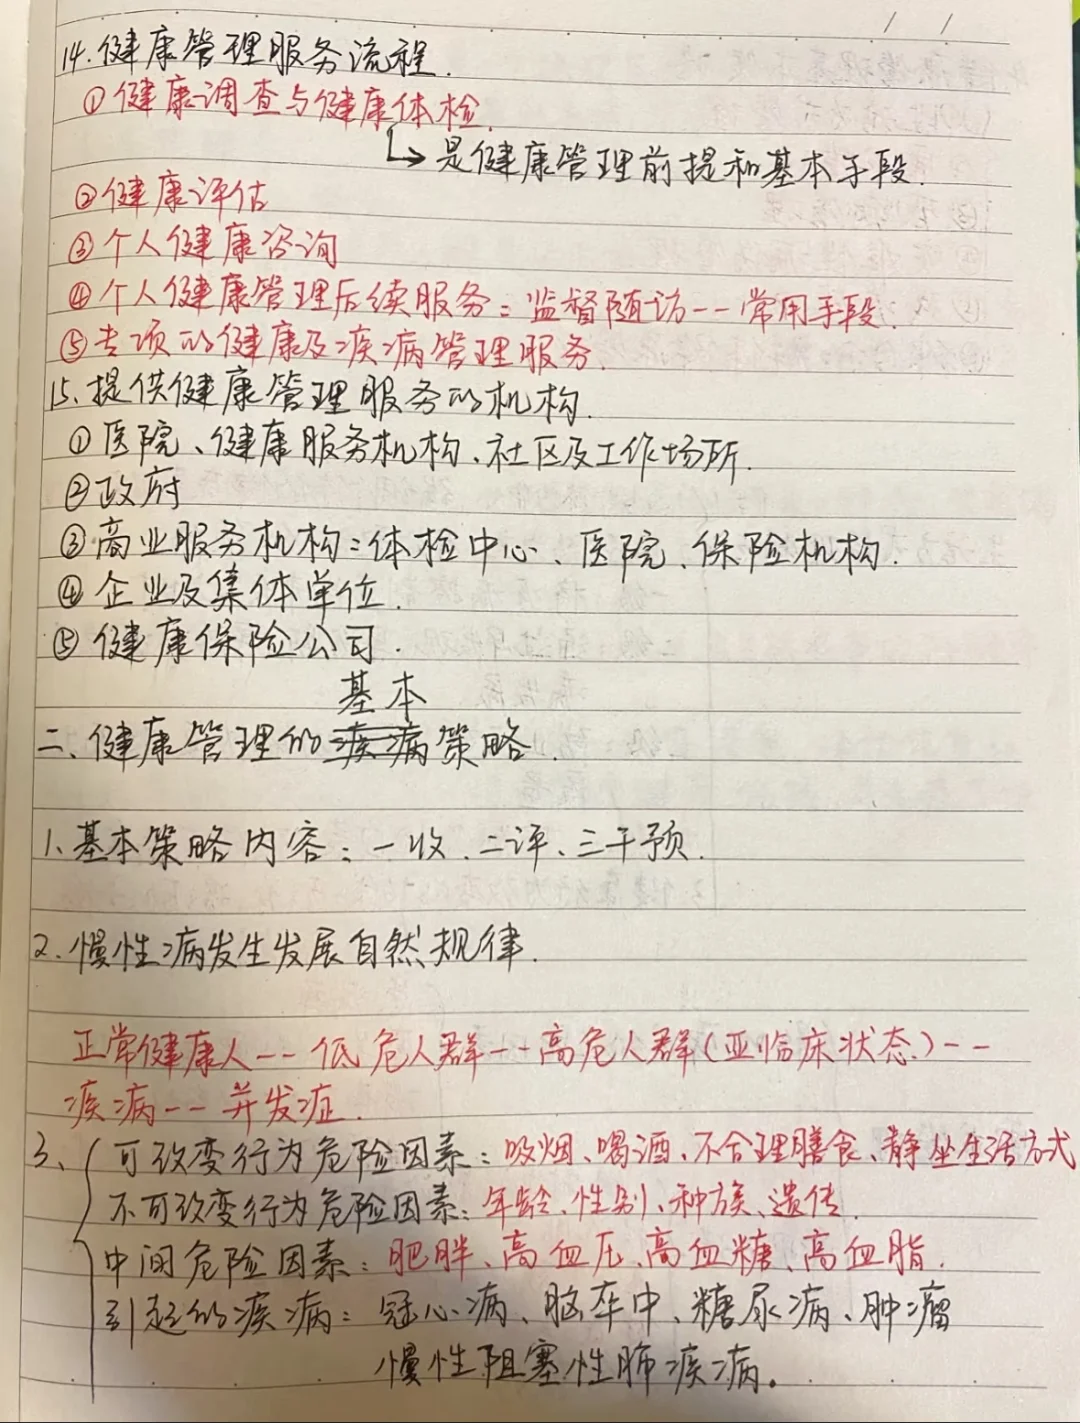 14.健康管理服务流程.
①健康调查与健康体检.
↳是健康管理前提和基本手段.
②健康评估
③个人健康咨询
④个人健康管理后续服务:监督随访--常用手段.
⑤专项的健康及疾病管理服务.
15.提供健康管理服务的机构.
①医院、健康服务机构、社区及工作场所.
②政府
③商业服务机构:体检中心、医院、保险机构.
④企业及集体单位.
⑤健康保险公司.
基本
二、健康管理的疾病策略.
1.基本策略内容:一收、二评、三干预.
2.慢性病发生发展自然规律.
正常健康人--低危人群--高危人群(亚临床状态)--
疾病--并发症.
3、可改变行为危险因素:吸烟、喝酒、不合理膳食、静坐生活方式
不可改变行为危险因素:年龄、性别、种族、遗传.
中间危险因素:肥胖、高血压、高血糖、高血脂.
引起的疾病:冠心病、脑卒中、糖尿病、肿瘤
慢性阻塞性肺疾病。